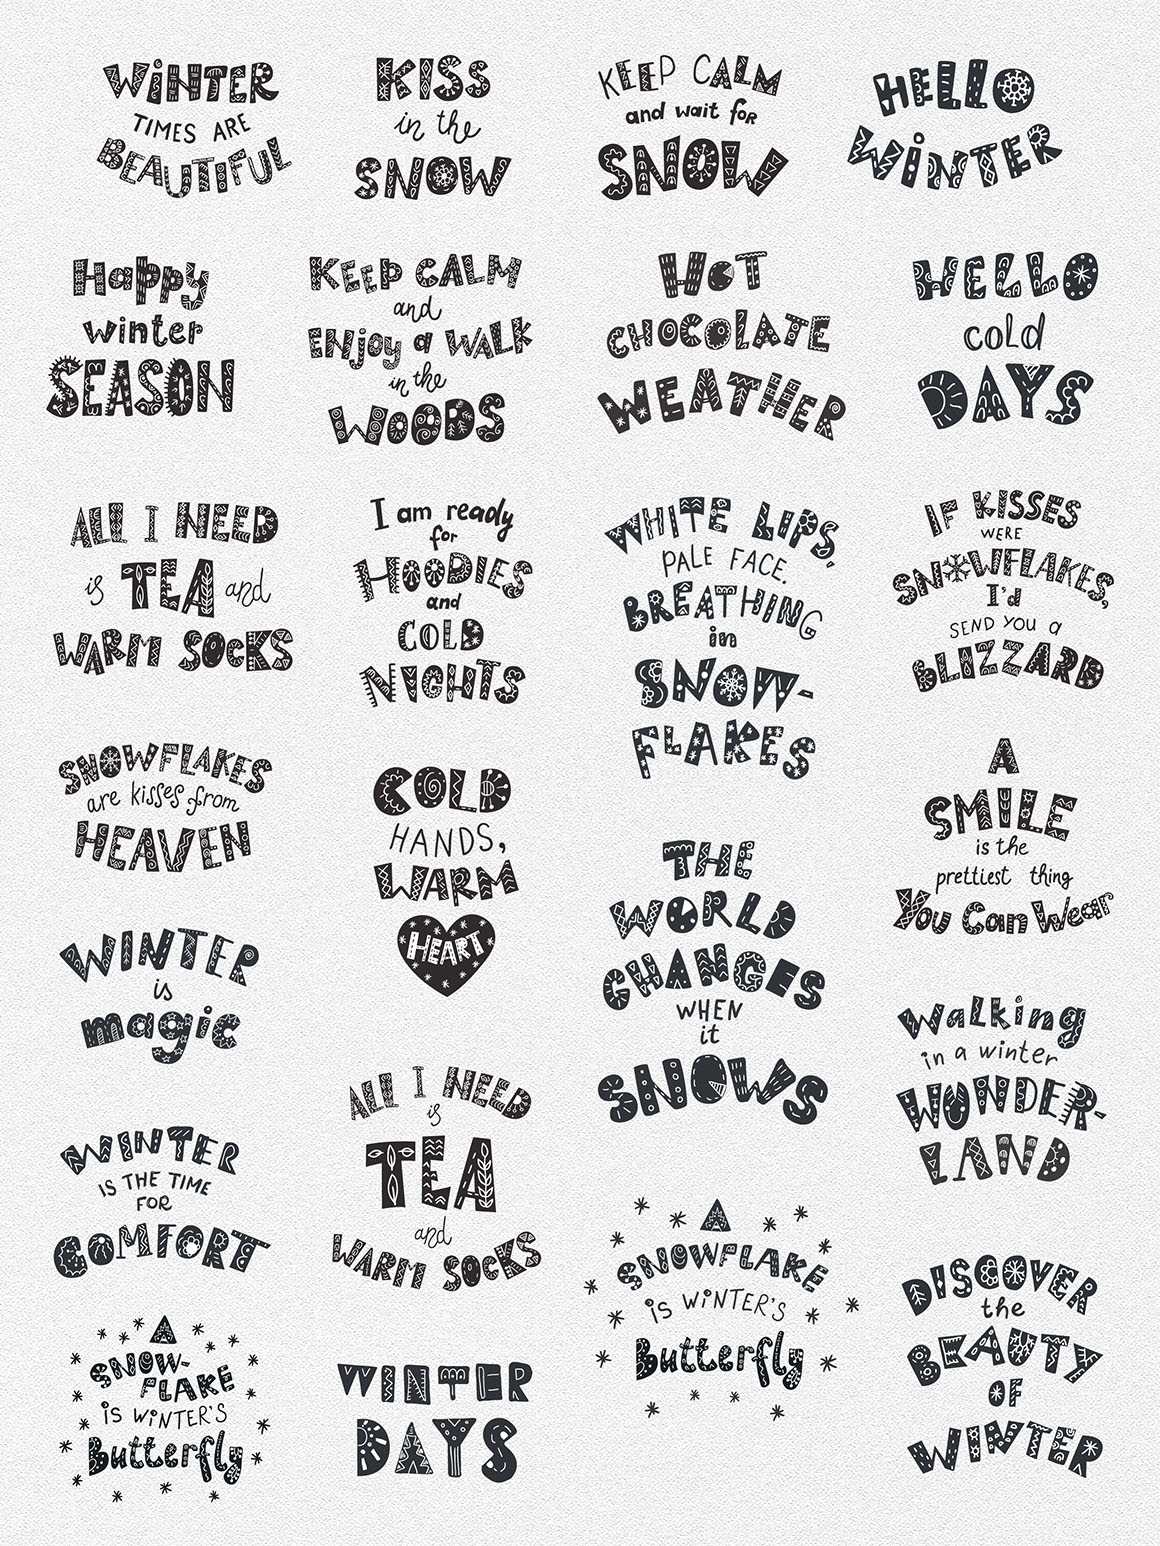 WiNTER
TIMES ARE
BEAUTIFUL
KISS
in the
SNOW
KEEP CALM
and wait for
SNOW
HELLO
WiNTER
Happy
winter
SEASON
KEEP CALM
and
ENjoy a WALK
in the
WOODS
HOT
CHOCOLATE
WEATHER
HELLO
cold
DAYS
ALL I NEED
is TEA and
WARM SOCKS
I am ready
for
HOODIES
and
COLD
NIGHTS
WHITE LIPS,
PALE FACE.
BREATHING
in
SNOW-
FLAKES
IF KISSES
WERE
SNOWFLAKES,
I'd
SEND YOU a
BLIZZARD
SNOWFLAKES
are kisses from
HEAVEN
COLD
HANDS,
WARM
HEART
THE
WORLD
CHANGES
WHEN
it
SNOWS
A
SMILE
is the
prettiest thing
You Can Wear
WINTER
is
magic
ALL I NEED
is
TEA
and
WARM SOCKS
Walking
in a winter
WONDER-
LAND
WINTER
IS THE TIME
FOR
COMFORT
A
SNOWFLAKE
iS WiNTER'S
Butterfly
DISCOVER
the
BEAUTY
OF
WINTER
A
SNOW-
FLAKE
iS WiNTER'S
Butterfly
WINTER
DAYS